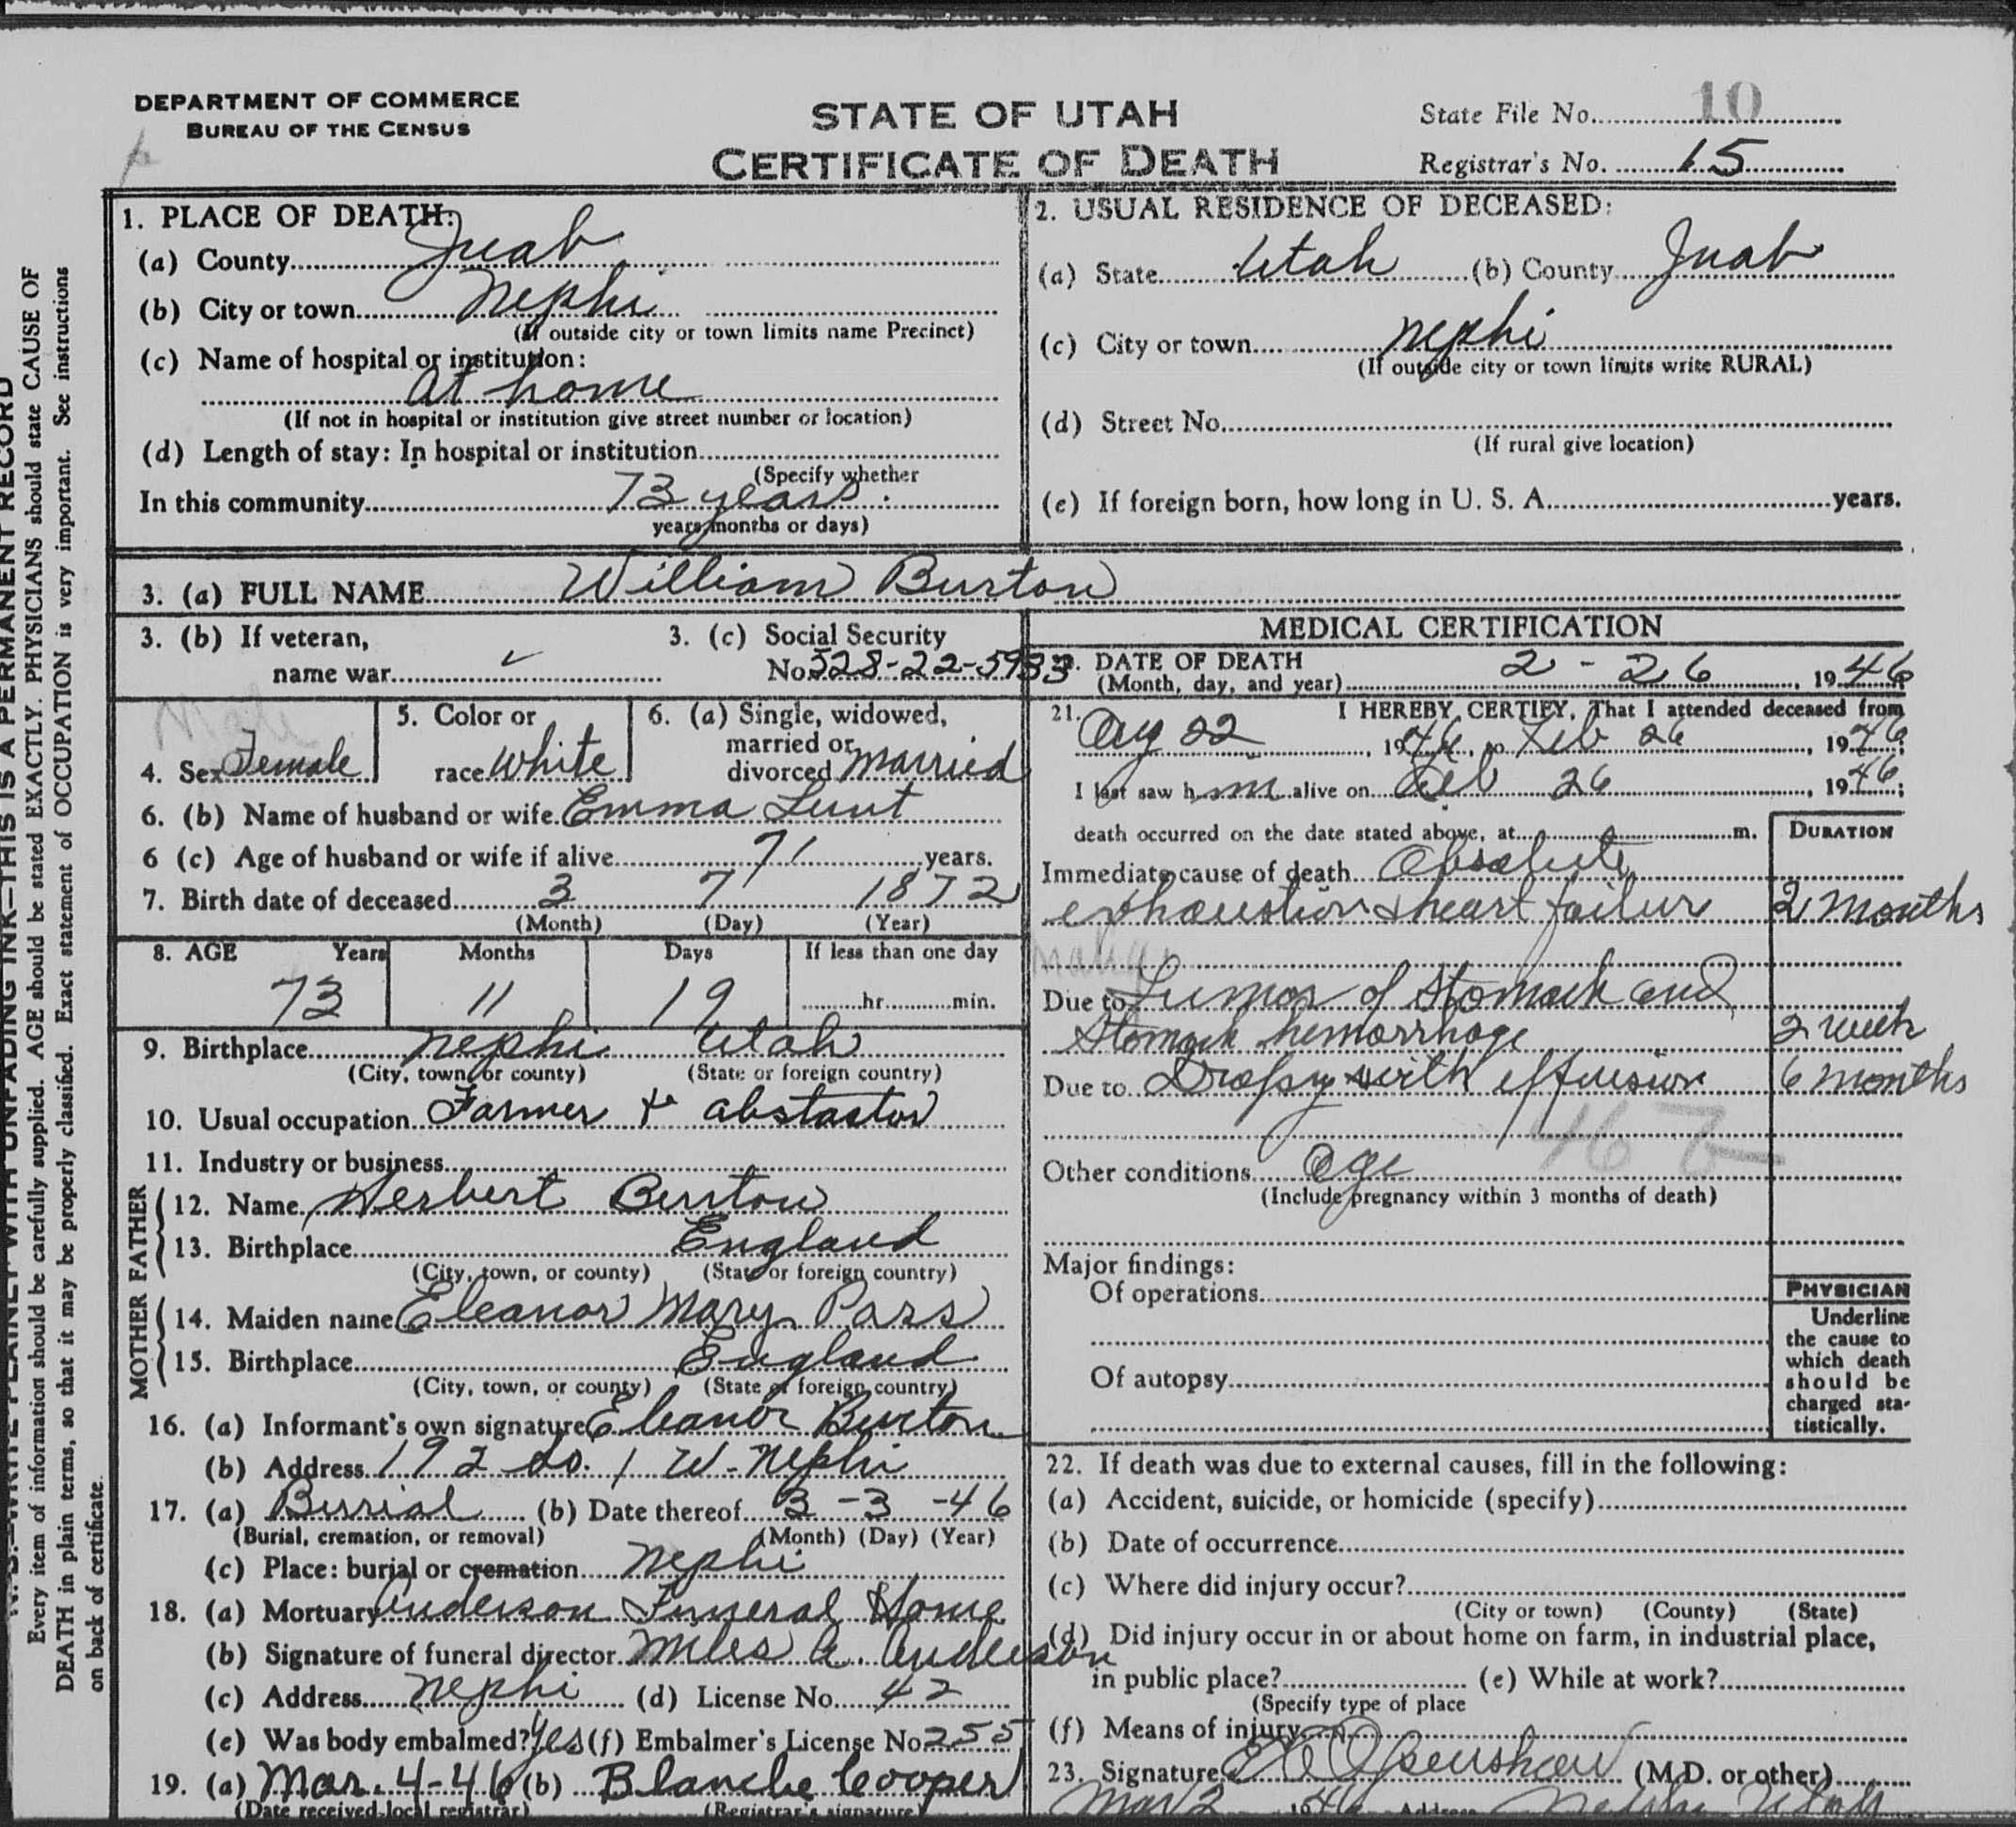 DEPARTMENT OF COMMERCE
BUREAU OF THE CENSUS
STATE OF UTAH
CERTIFICATE OF DEATH
State File No. 10
Registrar's No. 15
N. B.—WRITE PLAINLY WITH UNFADING INK—THIS IS A PERMANENT RECORD
Every item of information should be carefully supplied. AGE should be stated EXACTLY. PHYSICIANS should state CAUSE OF
DEATH in plain terms, so that it may be properly classified. Exact statement of OCCUPATION is very important. See instructions
on back of certificate.
1. PLACE OF DEATH:
(a) County Juab
(b) City or town Nephi
(If outside city or town limits name Precinct)
(c) Name of hospital or institution:
At home
(If not in hospital or institution give street number or location)
(d) Length of stay: In hospital or institution
(Specify whether
In this community 73 years
years, months or days)
2. USUAL RESIDENCE OF DECEASED:
(a) State Utah (b) County Juab
(c) City or town Nephi
(If outside city or town limits write RURAL)
(d) Street No.
(If rural give location)
(e) If foreign born, how long in U. S. A. years.
3. (a) FULL NAME William Burton
3. (b) If veteran,
name war
3. (c) Social Security
No. 528-22-5933
Male
4. Sex Female
5. Color or
race White
6. (a) Single, widowed,
married or
divorced Married
6. (b) Name of husband or wife Emma Lunt
6 (c) Age of husband or wife if alive 71 years.
7. Birth date of deceased 3 7 1872
(Month) (Day) (Year)
8. AGE Years Months Days If less than one day
73 11 19 hr. min.
9. Birthplace Nephi Utah
(City, town, or county) (State or foreign country)
10. Usual occupation Farmer & abstactor
11. Industry or business
FATHER
12. Name Herbert Burton
13. Birthplace England
(City, town, or county) (State or foreign country)
MOTHER
14. Maiden name Eleanor Mary Pass
15. Birthplace England
(City, town, or county) (State or foreign country)
16. (a) Informant's own signature Eleanor Burton
(b) Address 192 So. 1 W. Nephi
17. (a) Burial (b) Date thereof 3-3-46
(Burial, cremation, or removal) (Month) (Day) (Year)
(c) Place: burial or cremation Nephi
18. (a) Mortuary Anderson Funeral Home
(b) Signature of funeral director Miles A. Anderson
(c) Address Nephi (d) License No. 42
(e) Was body embalmed? Yes (f) Embalmer's License No. 255
19. (a) Mar. 4-46 (b) Blanche Cooper
(Date received local registrar) (Registrar's signature)
MEDICAL CERTIFICATION
20. DATE OF DEATH
(Month, day, and year) 2-26, 1946
21. I HEREBY CERTIFY, That I attended deceased from
Aug 22, 19 to Feb 26, 1946;
I last saw h m alive on Feb 26, 1946;
death occurred on the date stated above, at m.
DURATION
Immediate cause of death Absolute
exhaustion & heart failure 2 months
Due to Tumor of Stomach and
Stomach hemorrhage 2 week
Due to Dropsy with effusion 6 months
46 b
Other conditions Age
(Include pregnancy within 3 months of death)
Major findings:
Of operations
Of autopsy
PHYSICIAN
Underline
the cause to
which death
should be
charged sta-
tistically.
22. If death was due to external causes, fill in the following:
(a) Accident, suicide, or homicide (specify)
(b) Date of occurrence
(c) Where did injury occur?
(City or town) (County) (State)
(d) Did injury occur in or about home on farm, in industrial place,
in public place? (e) While at work?
(Specify type of place
(f) Means of injury
23. Signature Openshaw (M.D. or other)
Mar 2 1946 Address Nephi Utah